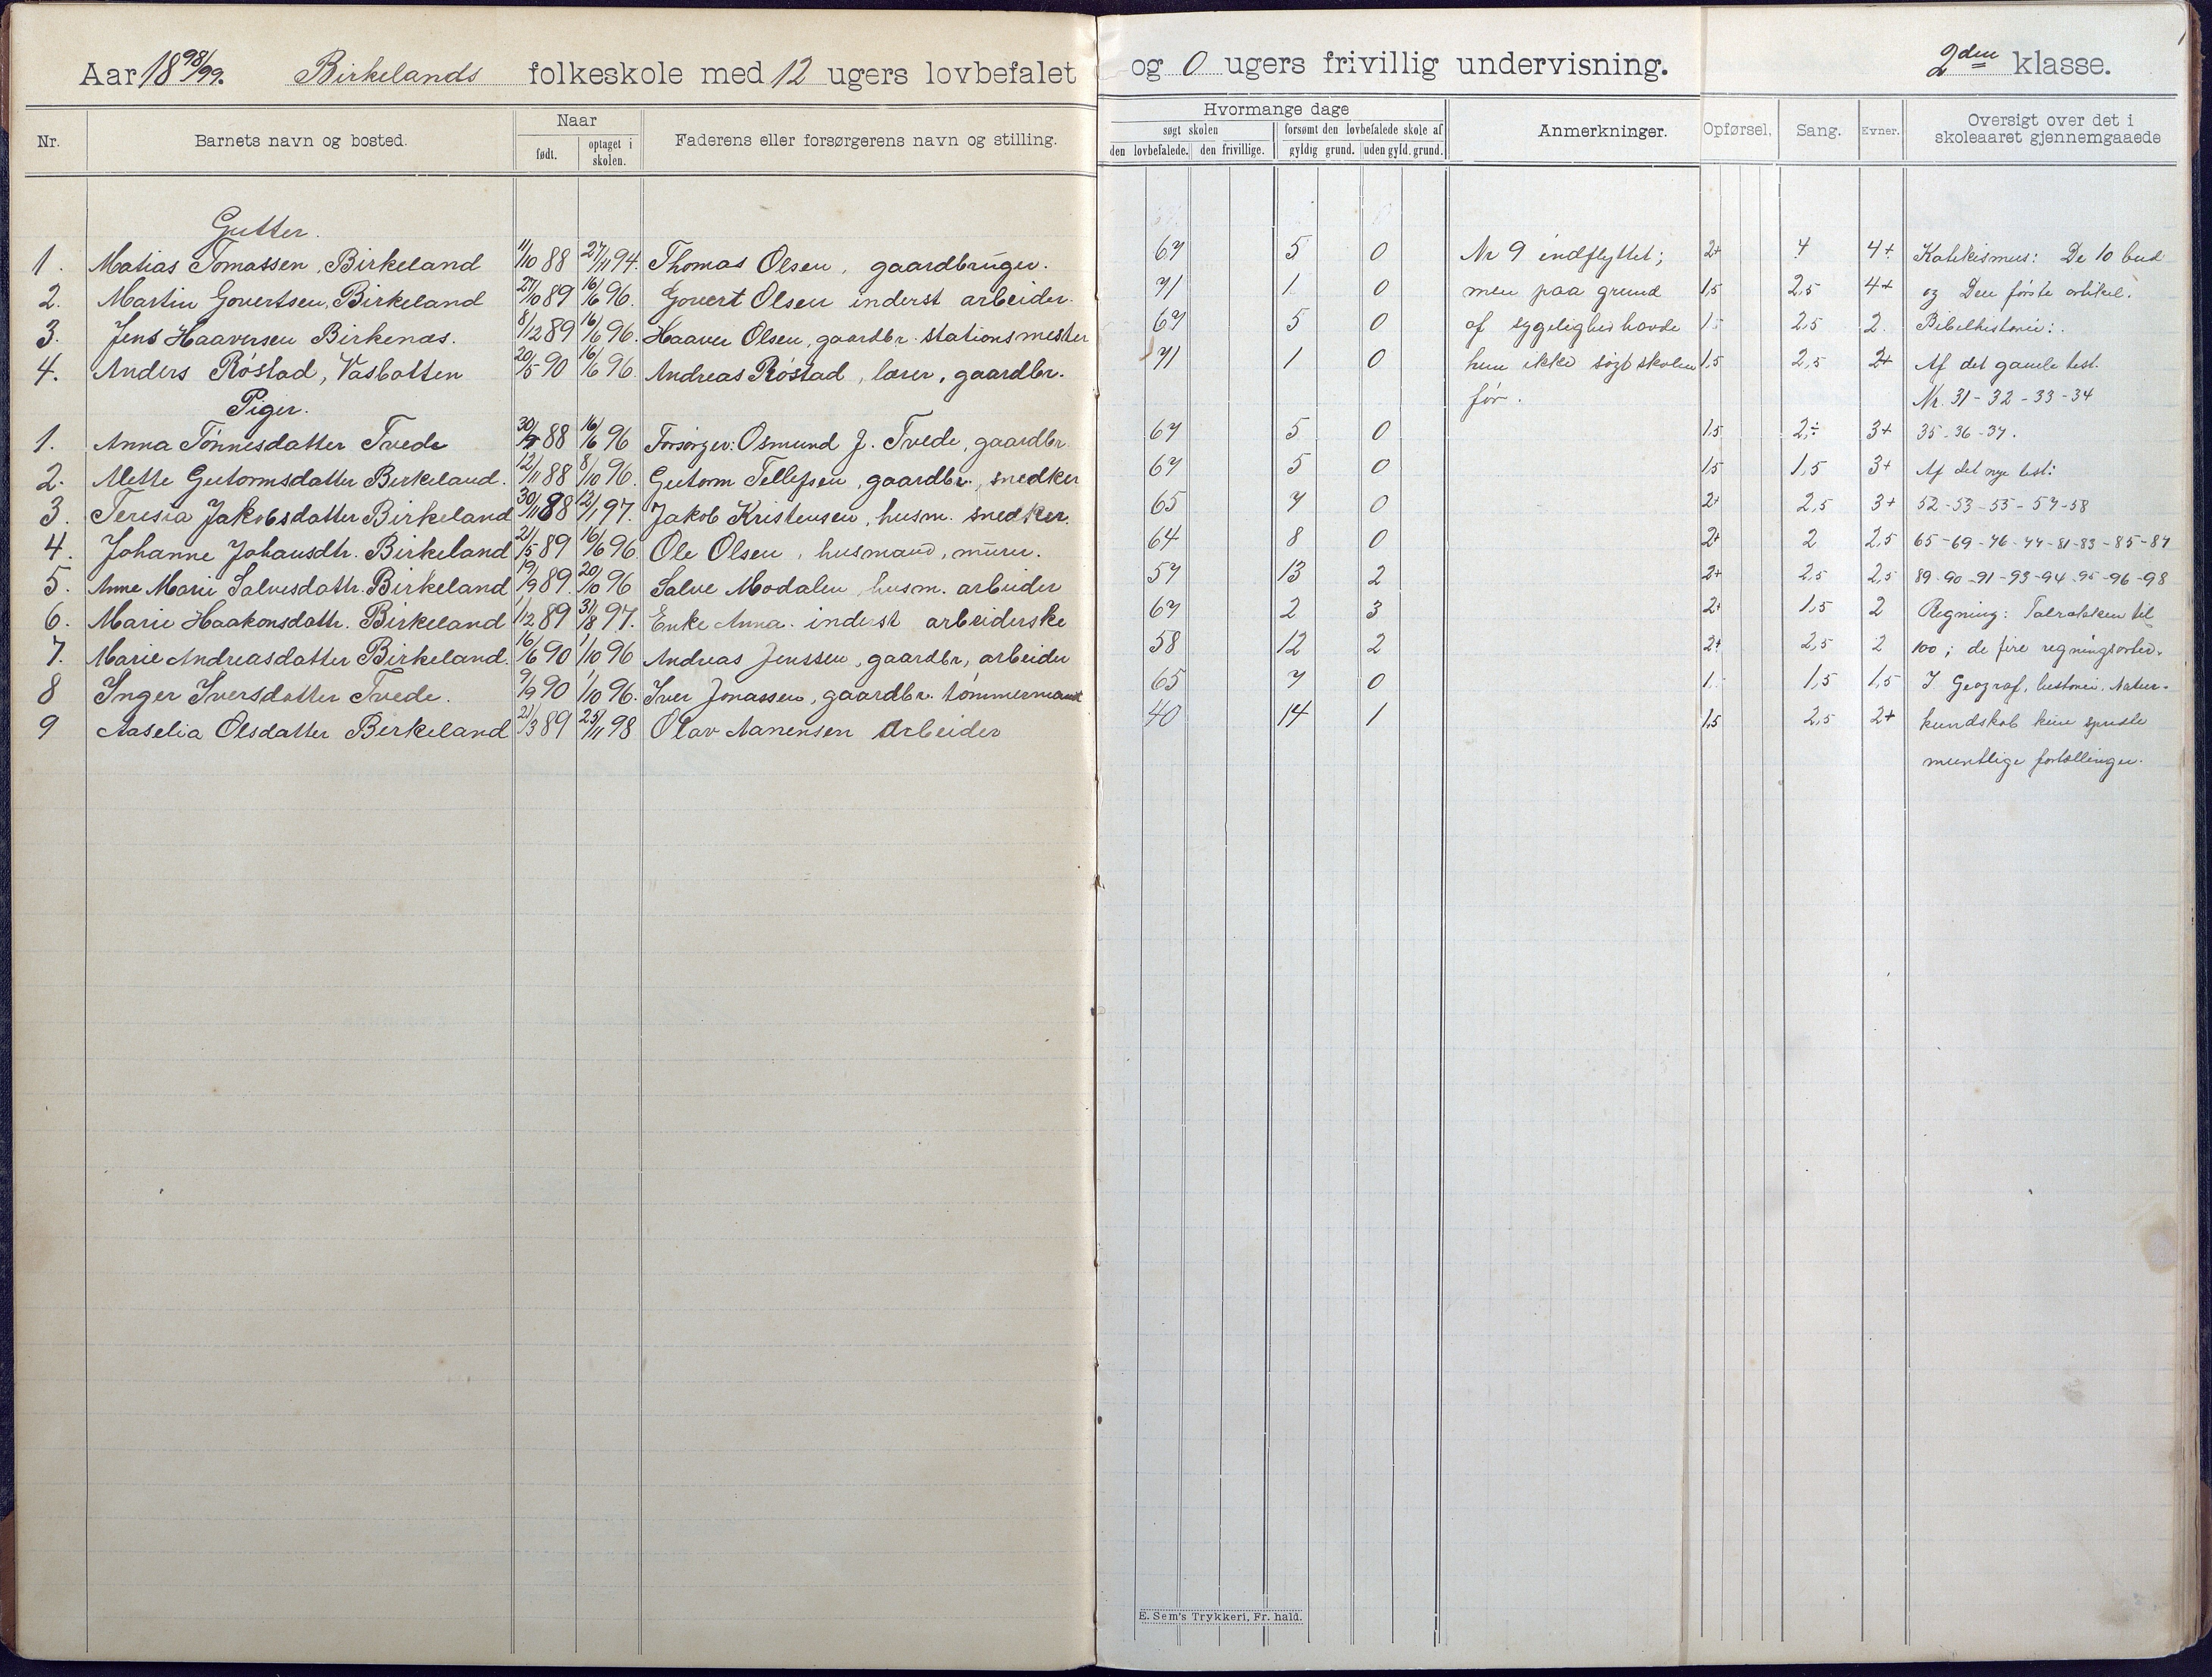 Aar 18 98/99. Birkelands folkeskole med 12 ugers lovbefalet og 0 ugers frivillig undervisning. 2den klasse.
Nr. Barnets navn og bosted. Naar født. optaget i skolen. Faderens eller forsørgerens navn og stilling. Hvormange dage søgt skolen den lovbefalede. den frivillige. forsømt den lovbefalede skole af gyldig grund. uden gyld. grund. Anmerkninger. Opførsel. Sang. Evner. Oversigt over det i skoleaaret gjennemgaaede
Gutter.
1. Matias Tomassen, Birkeland 11/10 88 27/11 94. Thomas Olsen, gaardbruger. 67 5 0 Nr 9 indflyttet; 2+ 4 4+ Katekismus: De 10 bud
2. Martin Govertsen, Birkeland 27/10 89 16/6 96. Govert Olsen inderst arbeider. 71 1 0 men paa grund 1,5 2,5 4+ og Den første artikel.
3. Jens Haaversen Birkenæs. 8/12 89 16/6 96. Haaver Olsen, gaardbr. stationsmester 67 5 0 af sygelighed havde 1 2,5 2. Bibelhistorie:
4. Anders Røstad, Vasbotten 20/5 90 16/6 96. Andreas Røstad, lærer, gaardbr. 71 1 0 hun ikke søgt skolen 1,5 2,5 2+ Af det gamle test.
Piger. før. Nr. 31-32-33-34
1. Anna Tønnesdatter Tvede 88 16/6 96 Forsørger: Osmund J. Tvede, gaardbr. 67 5 0 1,5 2÷ 3+ 35-36-37.
2. Mette Gutormsdatter Birkeland. 12/11 88 8/10 96. Gutorm Tellefsen, gaardbr., snedker 67 5 0 1,5 1,5 3+ Af det nye test:
3. Teresia Jakobsdatter Birkeland 30/11 88 12/1 97. Jakob Kristensen, husm. snedker. 65 7 0 2+ 2,5 3+ 52-53-55-57-58
4. Johanne Johansdtr. Birkeland 21/5 89 16/6 96 Ole Olsen, husmand, murer. 64 8 0 2+ 2 2,5 65-69-76-77-81-83-85-87
5. Anne Marie Salvesdattr. Birkeland 19/9 89. 20/10 96 Salve Modalen husm. arbeider 57 13 2 2+ 2,5 2,5 89-90-91-93-94-95-96-98
6. Marie Haakonsdattr. Birkeland 1/12 89 31/8 97. Enke Anna. inderst arbeiderske 67 2 3 2+ 1,5 2 Regning: Talrækken til
7. Marie Andreasdatter Birkeland. 16/6 90 1/10 96 Andreas Jenssen, gaardbr, arbeider 58 12 2 2+ 2,5 2 100; de fire regningsarter.
8 Inger Iversdatter Tvede. 9/9 90 1/10 96. Iver Jonassen, gaardbr. tømmermand 65 7 0 1 1,5 1,5 I Geograf, historie, Natur-
9 Aaselia Olsdatter Birkeland 21/3 89 25/11 98 Olav Nanensen Arbeider 40 14 1 1,5 2,5 2+ kundskab kun spredte
muntlige fortællinger.
E. Sem's Trykkeri, Fr. hald.